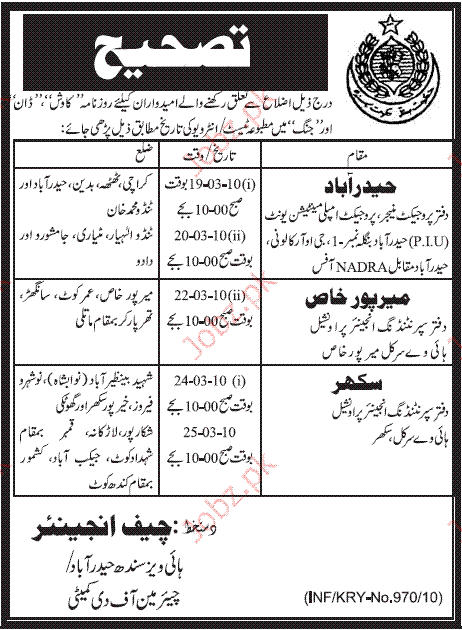 تصحیح
درج ذیل اضلاع سے تعلق رکھنے والے امیدواران کیلئے روزنامہ "کاوش"، "ڈان"
اور "جنگ" میں مطبوعہ ٹیسٹ/انٹرویو کی تاریخ مطابق ذیل پڑھی جائے:
مقام
تاریخ/وقت
ضلع
حیدرآباد
دفتر پروجیکٹ منیجر، پروجیکٹ امپلی مینٹیشن یونٹ
(P.I.U) حیدرآباد بنگلہ نمبر-1، جی او آر کالونی،
حیدرآباد مقابل NADRA آفس
(i) 19-03-10 بوقت
صبح 10-00 بجے
(ii) 20-03-10
بوقت صبح 10-00 بجے
کراچی، ٹھٹھہ، بدین، حیدرآباد اور
ٹنڈو محمد خان
ٹنڈو الٰہیار، مٹیاری، جامشورو اور
دادو
میرپور خاص
دفتر سپرنٹنڈنگ انجینئر پراونشیل
ہائی وے سرکل میرپور خاص
(ii) 22-03-10
بوقت صبح 10-00 بجے
میرپور خاص، عمر کوٹ، سانگھڑ،
تھرپارکر بمقام ماتلی
سکھر
دفتر سپرنٹنڈنگ انجینئر پراونشیل
ہائی وے سرکل، سکھر
(i) 24-03-10
بوقت صبح 10-00 بجے
25-03-10
بوقت صبح 10-00 بجے
شہید بینظیر آباد (نوابشاہ)، نوشہرو
فیروز، خیرپور سکھر اور گھوٹکی
شکارپور، لاڑکانہ، قمبر بمقام
شہداد کوٹ، جیکب آباد، کشمور
بمقام کندھ کوٹ
دستخط: چیف انجینئر
ہائی ویز سندھ حیدرآباد/
چیئرمین آف دی کمیٹی
(INF/KRY-No.970/10)
Jobz.pk